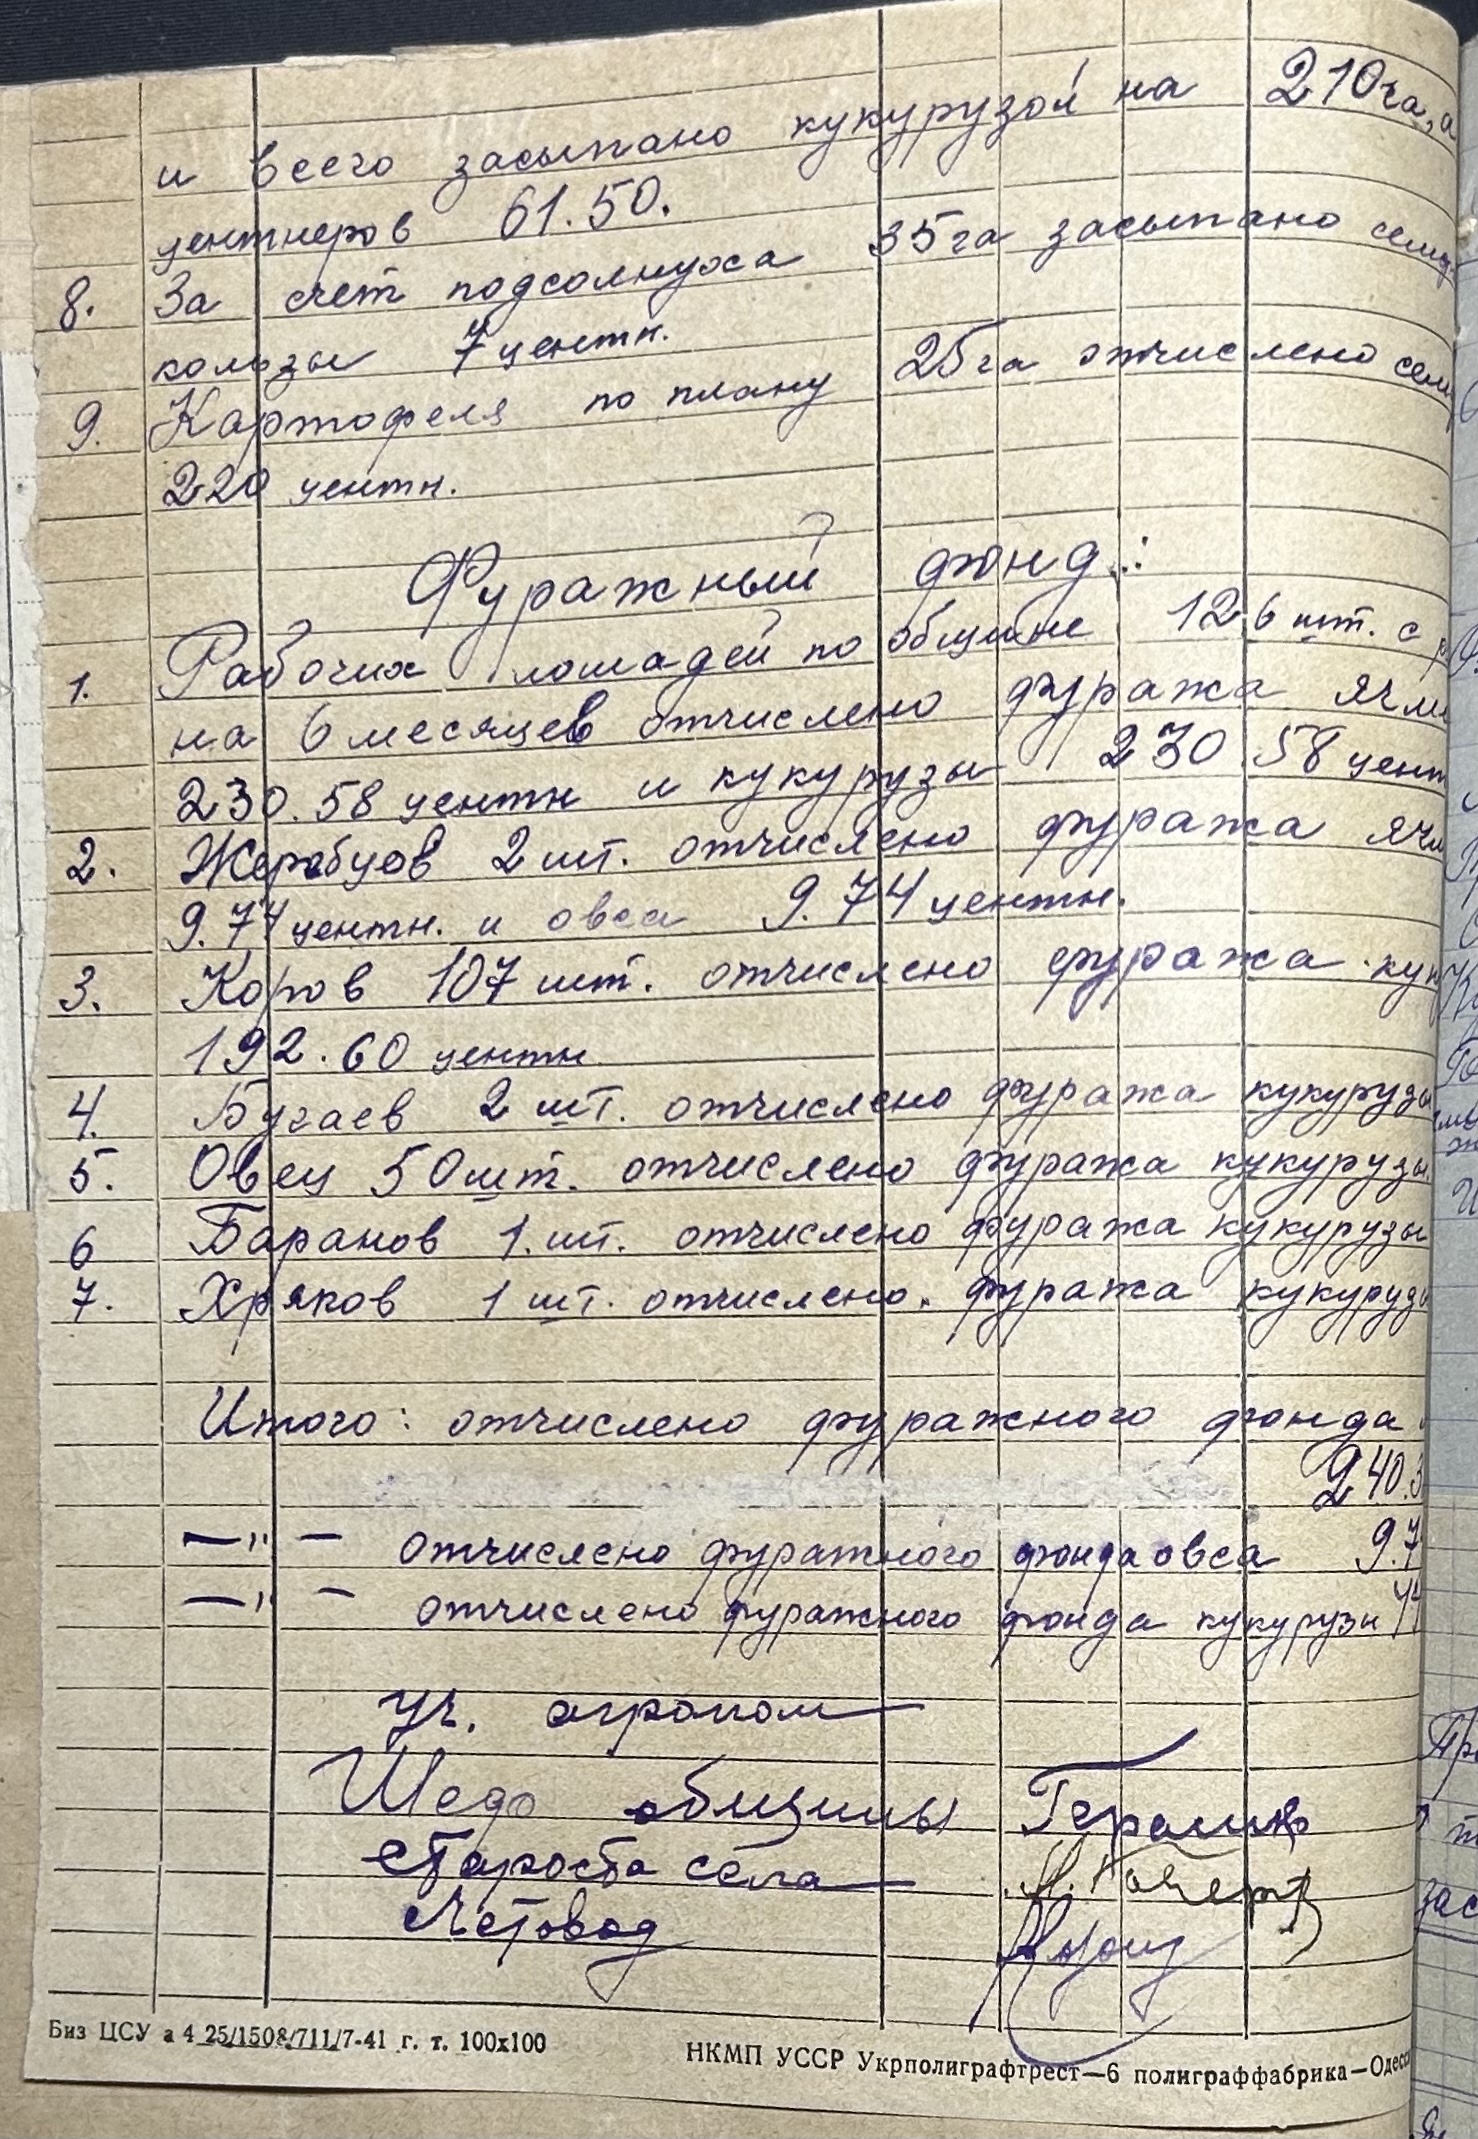 и всего засыпано кукурузой на 210га, а
центнеров 61.50.
8. За счет подсолнуха 35га засыпано семя
кользы 7 центн.
9. Картофеля по плану 25га отчислено семя
220 центн.
Фуражный фонд:
1. Рабочих лошадей по общине 126 шт. с р
на 6 месяцев отчислено фуража ячм
230.58 центн и кукурузы 230.58 цент
2. Жеребцов 2 шт. отчислено фуража ячм
9.74 центн. и овса 9.74 центн.
3. Коров 107 шт. отчислено фуража кук
192.60 центн
4. Бугаев 2 шт. отчислено фуража кукурузы
5. Овец 50 шт. отчислено фуража кукурузы
6 Баранов 1. шт. отчислено фуража кукурузы
7. Хряков 1 шт. отчислено. фуража кукурузы
Итого: отчислено фуражного фонда
240.3
—"— отчислено фуражного фонда овса 9.7
—"— отчислено фуражного фонда кукурузы 44
Уч. агроном
Шеф общины
Староста села
Счетовод
Биз ЦСУ а 4 25/1508/711/7-41 г. т. 100х100
НКМП УССР Укрполиграфтрест—6 полиграффабрика—Одесс